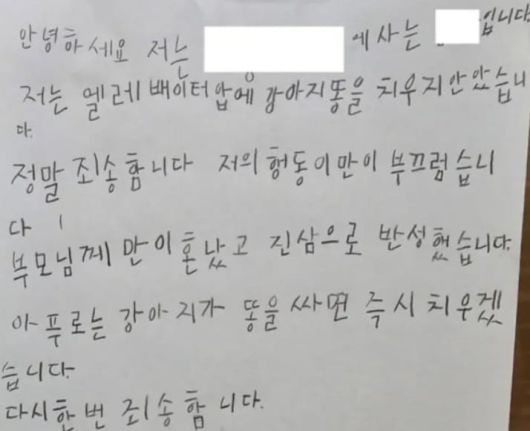 안녕하세요 저는 에 사는 입니다
저는 엘레배이터 압에 강아지똥을 치우지안았습니
다.
정말 죄송함니다 저의 헹동이만이 부끄럼습니
다
부모님께 만이 혼났고 진삼으로 반성했습니다.
아푸로는 강아지가 똥을 싸면 즉시 치우겠
습니다.
다시한번 죄송함니다.